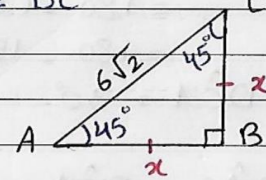 6√2
45°
x
A
45°
B
x